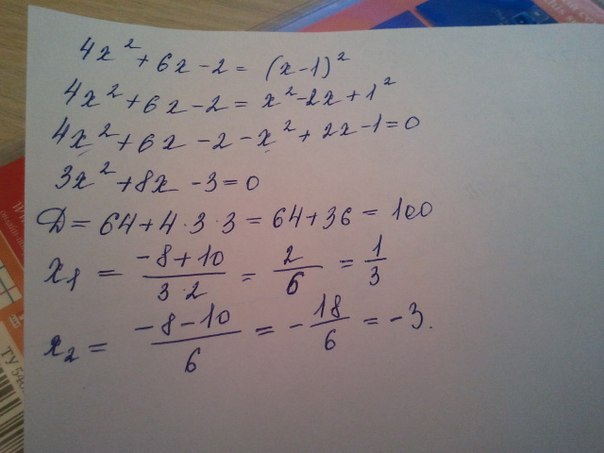 4x² + 6x - 2 = (x - 1)²
4x² + 6x - 2 = x² - 2x + 1²
4x² + 6x - 2 - x² + 2x - 1 = 0
3x² + 8x - 3 = 0
Д = 64 + 4 · 3 · 3 = 64 + 36 = 100
x₁ = (-8 + 10)/(3 · 2) = 2/6 = 1/3
x₂ = (-8 - 10)/6 = -18/6 = -3.
ТУ